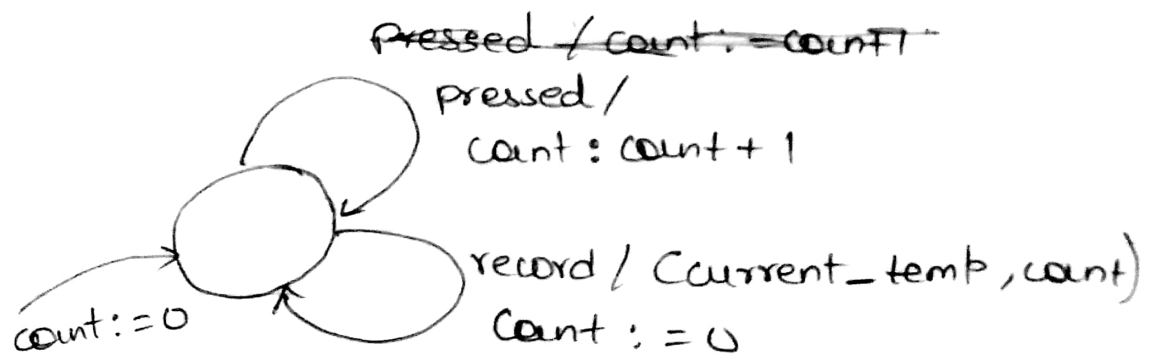 pressed / count := count+1
pressed /
count : count + 1
record / (current_temp, count)
count := 0
count := 0